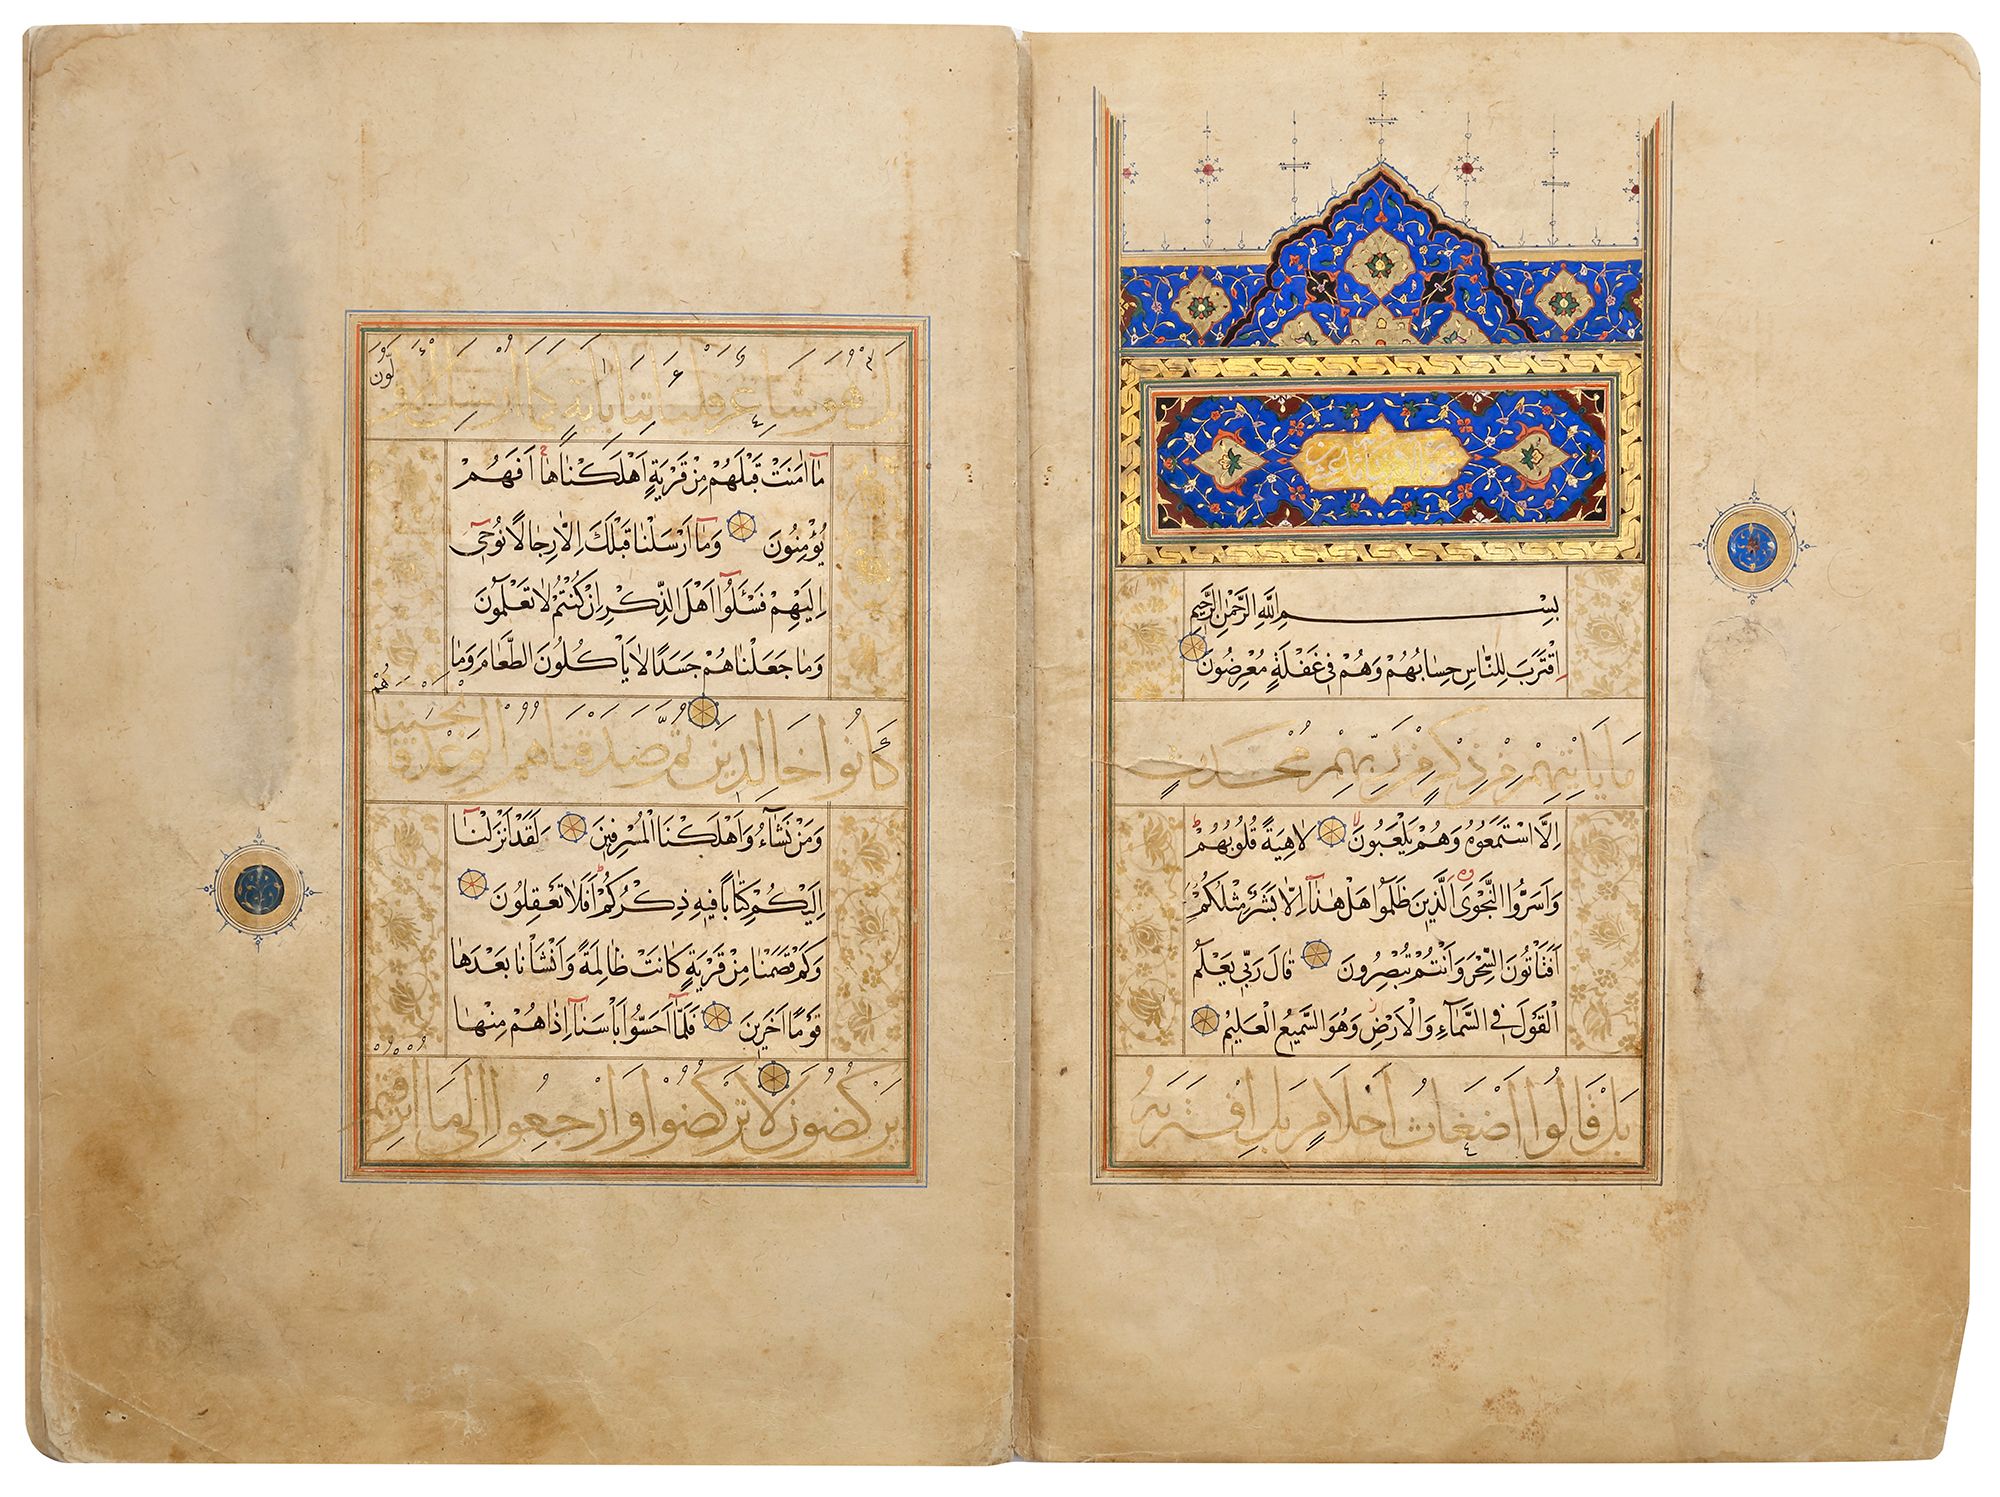 بِسْمِ اللهِ الرَّحْمٰنِ الرَّحِيمِ
اِقْتَرَبَ لِلنَّاسِ حِسَابُهُمْ وَهُمْ فِي غَفْلَةٍ مُعْرِضُونَ
مَا يَأْتِيهِمْ مِنْ ذِكْرٍ مِنْ رَبِّهِمْ مُحْدَثٍ
اِلَّا اسْتَمَعُوهُ وَهُمْ يَلْعَبُونَ لَاهِيَةً قُلُوبُهُمْ
وَاَسَرُّوا النَّجْوَى الَّذِينَ ظَلَمُوا هَلْ هٰذَا اِلَّا بَشَرٌ مِثْلُكُمْ
اَفَتَأْتُونَ السِّحْرَ وَاَنْتُمْ تُبْصِرُونَ قَالَ رَبِّي يَعْلَمُ
الْقَوْلَ فِي السَّمَآءِ وَالْاَرْضِ وَهُوَ السَّمِيعُ الْعَلِيمُ
بَلْ قَالُوا اَضْغَاثُ اَحْلَامٍ بَلِ افْتَرٰيهُ
بَلْ هُوَ شَاعِرٌ فَلْيَأْتِنَا بِاٰيَةٍ كَمَا اُرْسِلَ الْاَوَّلُونَ
مَآ اٰمَنَتْ قَبْلَهُمْ مِنْ قَرْيَةٍ اَهْلَكْنَاهَآ اَفَهُمْ
يُؤْمِنُونَ وَمَآ اَرْسَلْنَا قَبْلَكَ اِلَّا رِجَالًا نُوحِي
اِلَيْهِمْ فَسْـَٔلُوٓا اَهْلَ الذِّكْرِ اِنْ كُنْتُمْ لَا تَعْلَمُونَ
وَمَا جَعَلْنَاهُمْ جَسَدًا لَا يَأْكُلُونَ الطَّعَامَ وَمَا
كَانُوا خَالِدِينَ ثُمَّ صَدَقْنَاهُمُ الْوَعْدَ فَاَنْجَيْنَاهُمْ
وَمَنْ نَشَآءُ وَاَهْلَكْنَا الْمُسْرِفِينَ لَقَدْ اَنْزَلْنَآ
اِلَيْكُمْ كِتَابًا فِيهِ ذِكْرُكُمْ اَفَلَا تَعْقِلُونَ
وَكَمْ قَصَمْنَا مِنْ قَرْيَةٍ كَانَتْ ظَالِمَةً وَاَنْشَأْنَا بَعْدَهَا
قَوْمًا اٰخَرِينَ فَلَمَّآ اَحَسُّوا بَأْسَنَآ اِذَا هُمْ مِنْهَا
يَرْكُضُونَ لَا تَرْكُضُوا وَارْجِعُوٓا اِلٰى مَآ اُتْرِفْتُمْ